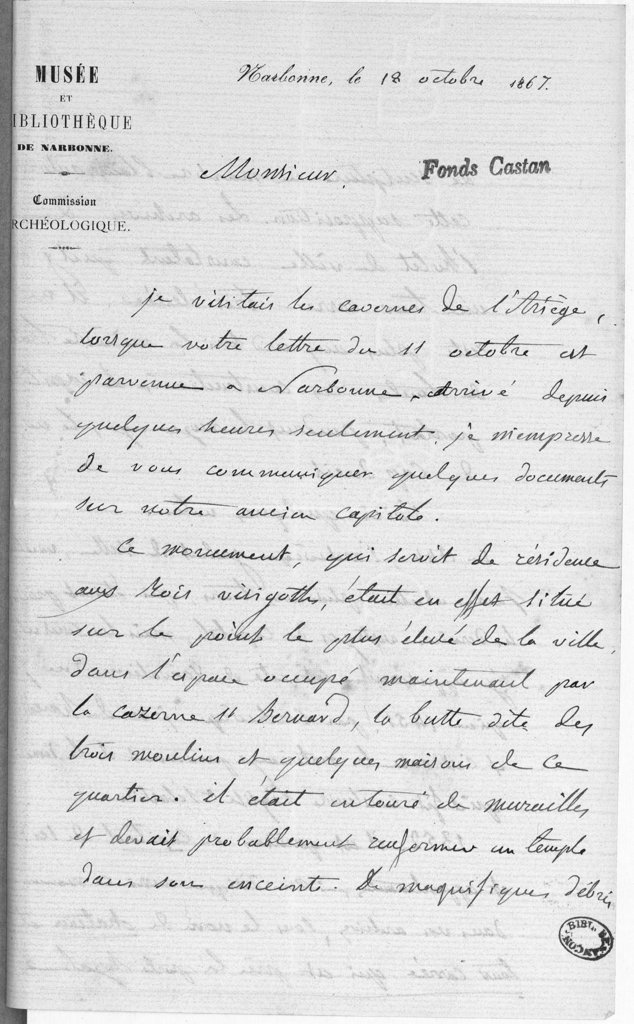 MUSÉE
ET
IBLIOTHÈQUE
DE NARBONNE.
Commission
RCHÉOLOGIQUE.
Narbonne, le 18 octobre 1867.
Fonds Castan
Monsieur,
je visitais les cavernes de l'Ariège,
lorsque votre lettre du 11 octobre est
parvenue à Narbonne. Arrivé depuis
quelques heures seulement, je m'empresse
de vous communiquer quelques documents
sur notre ancien capitole.
Ce monument, qui servit de résidence
aux Rois visigoths, était en effet situé
sur le point le plus élevé de la ville,
dans l'espace occupé maintenant par
la cazerne St Bernard, la butte dite des
trois moulins et quelques maisons de ce
quartier. il était entouré de murailles
et devait probablement renfermer un temple
dans son enceinte. De magnifiques débris
BIBL. BESANÇON